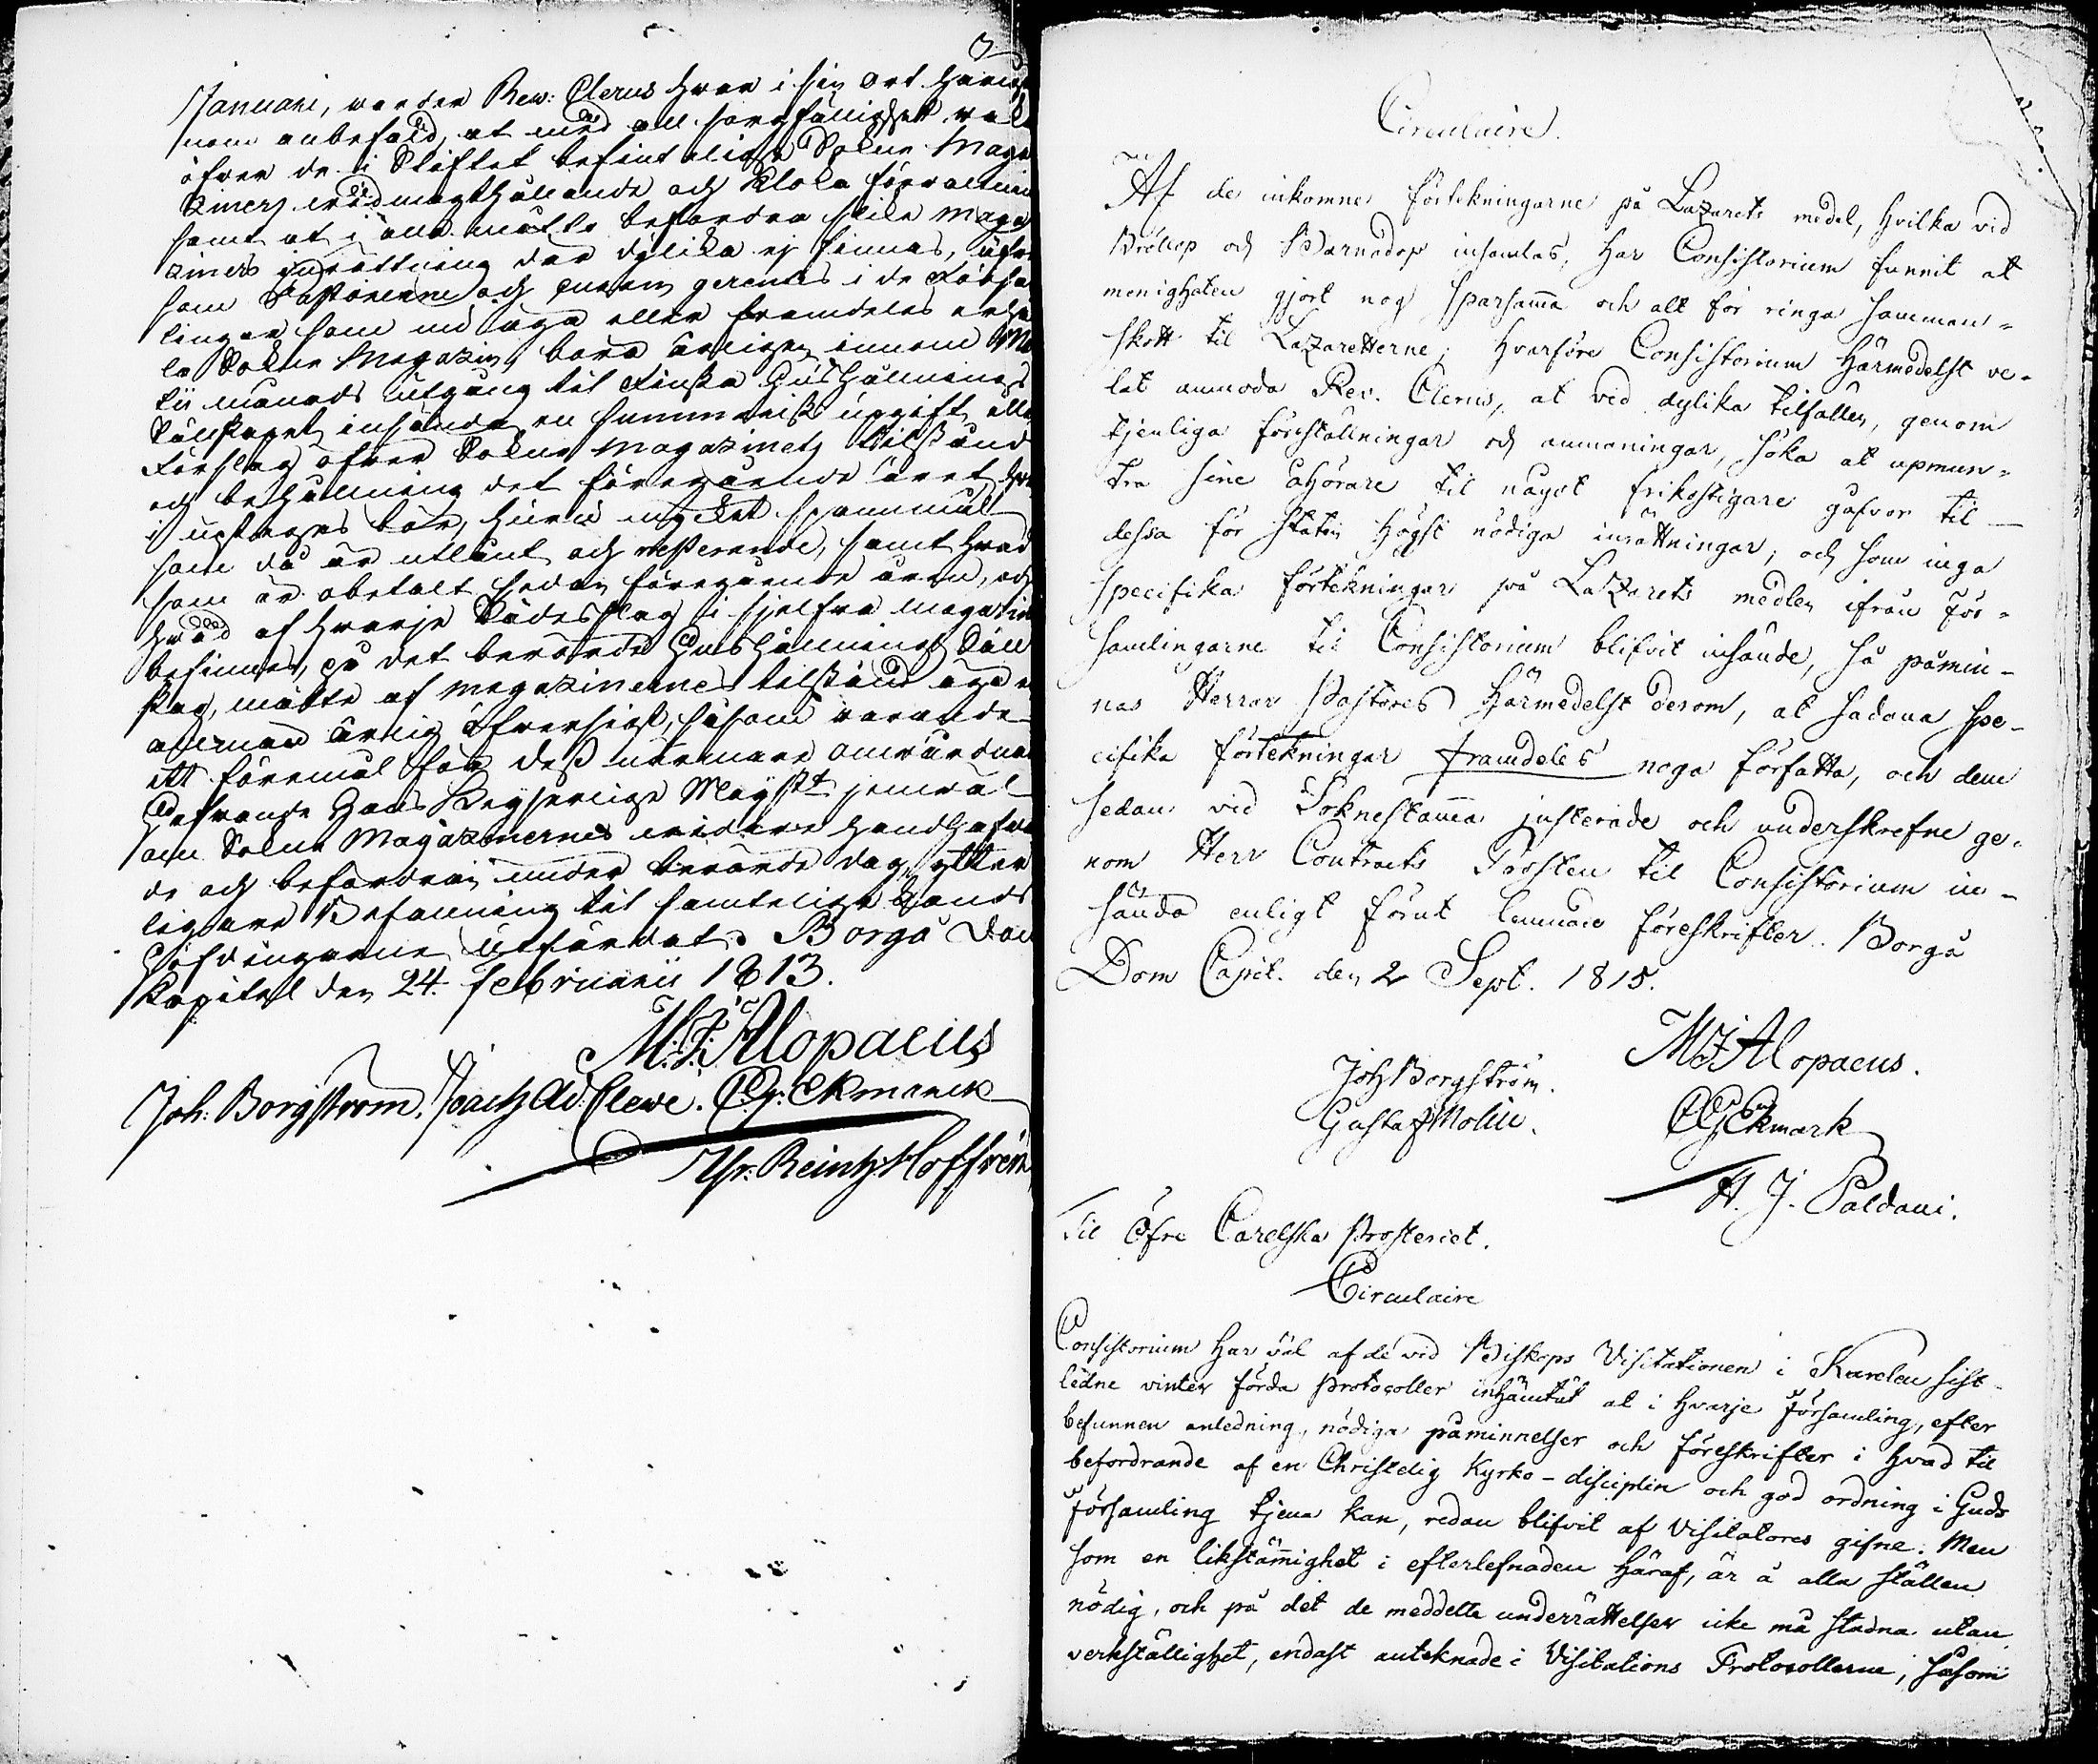 Januarii, warder Rev: Clerus hvar i sin ort härige
nom anbefald, at med all sorgfällighet vaka
öfver de i Stiftet befinteliga Sokne Maga
ziners vid magthållande och kloka förvaltning
samt at i alla måtto befordra slika maga
ziners inrättning der dylika ej finnas, äfven
som Pastorerne och curam gerentes i de Försam
lingar som nu äga eller framdeles erhål
la Sokne Magazin, böra årligen innom
tii månads utgång til Finska Hushållnings
Sällskapet insända en summarisk upgift eller
Förslag öfver Sokne Magazinets tilstånd
och behållning det föregående året, hvar
i uptagas bör, huru mycket spannmål
som då är utlånt och resterande, samt hvad
som är obetalt sedan föregående åren, och
hvad af hvarje Sädesslag i sjelfva magazinet
befinnes, på det berörde Hushållnings Säll
skap, måtte af magazinernes tilstånd äga en
allmän årlig öfversigt, såsom varande
ett föremål för dess närmare omvårdnad
Hafvande Hans Kejserliga Majst jemväl
om Sokne Magazinernes vidare handhafvan
de och befordran under berörde dag, ytter
ligare Befallning til samtelige Lands
höfdingarne utfärdat. Borgå Dom
Kapitel den 24. Februarii 1813.
M: J: Alopaeus
Joh: Borgström. Joach Ad: Cleve. C. G: Ekmarck
Gr: Reinh: Hoffrén
Circulaire.
Af de inkomne förtekningarne på Lazarets medel, hvilka vid
Bröllop och Barnadop insamlas, har Consistorium funnit at
menigheten gjort nog sparsam̄a och alt för ringa samman-
skott til Lazaretterne; hvarföre Consistorium härmedelst ve-
lat anmoda Rev. Clerus, at vid dylika tilfällen, genom
tjenliga föreställningar och anmaningar, söka at upmun-
tra sine åhörare til något frikostigare gåfvor til
dessa för staten högst nödiga inrättningar; och som inga
specifika förtekningar på Lazarets medlen ifrån för-
samlingarne til Consistorium blifvit insände, så påmin-
nas Herrar Pastores härmedelst derom, at sådana spe-
cifika förtekningar framdeles noga författa, och dem
sedan vid Soknestam̄a justerade och underskrefne ge-
nom Herr Contracts Prosten til Consistorium in-
sända enligt förut lemnade föreskrifter. Borgå
Dom Capit. den 2 Sept. 1815.
M J Alopaeus.
Joh Borgström.
Gustaf Molin.
C G Ekmark
H. J. Paldani.
Til Öfre Carelska Prosteriet.
Circulaire
Consistorium har väl af de vid Biskops Visitationen i Karelen sist-
ledne vinter förda Protocoller inhämtat at i hvarje Församling, efter
befunnen anledning, nödiga påminnelser och föreskrifter i hvad til
befordrande af en Christelig Kyrko-disciplin och god ordning i Guds
församling tjena kan, redan blifvit af Visitatores gifne. Men
som en likstäm̄ighet i efterlefnaden häraf, är å alla ställen
nödig, och på det de meddelte underrättelser icke må stadna utan
verkställighet, endast anteknade i Visitations Protocollerne; såsom